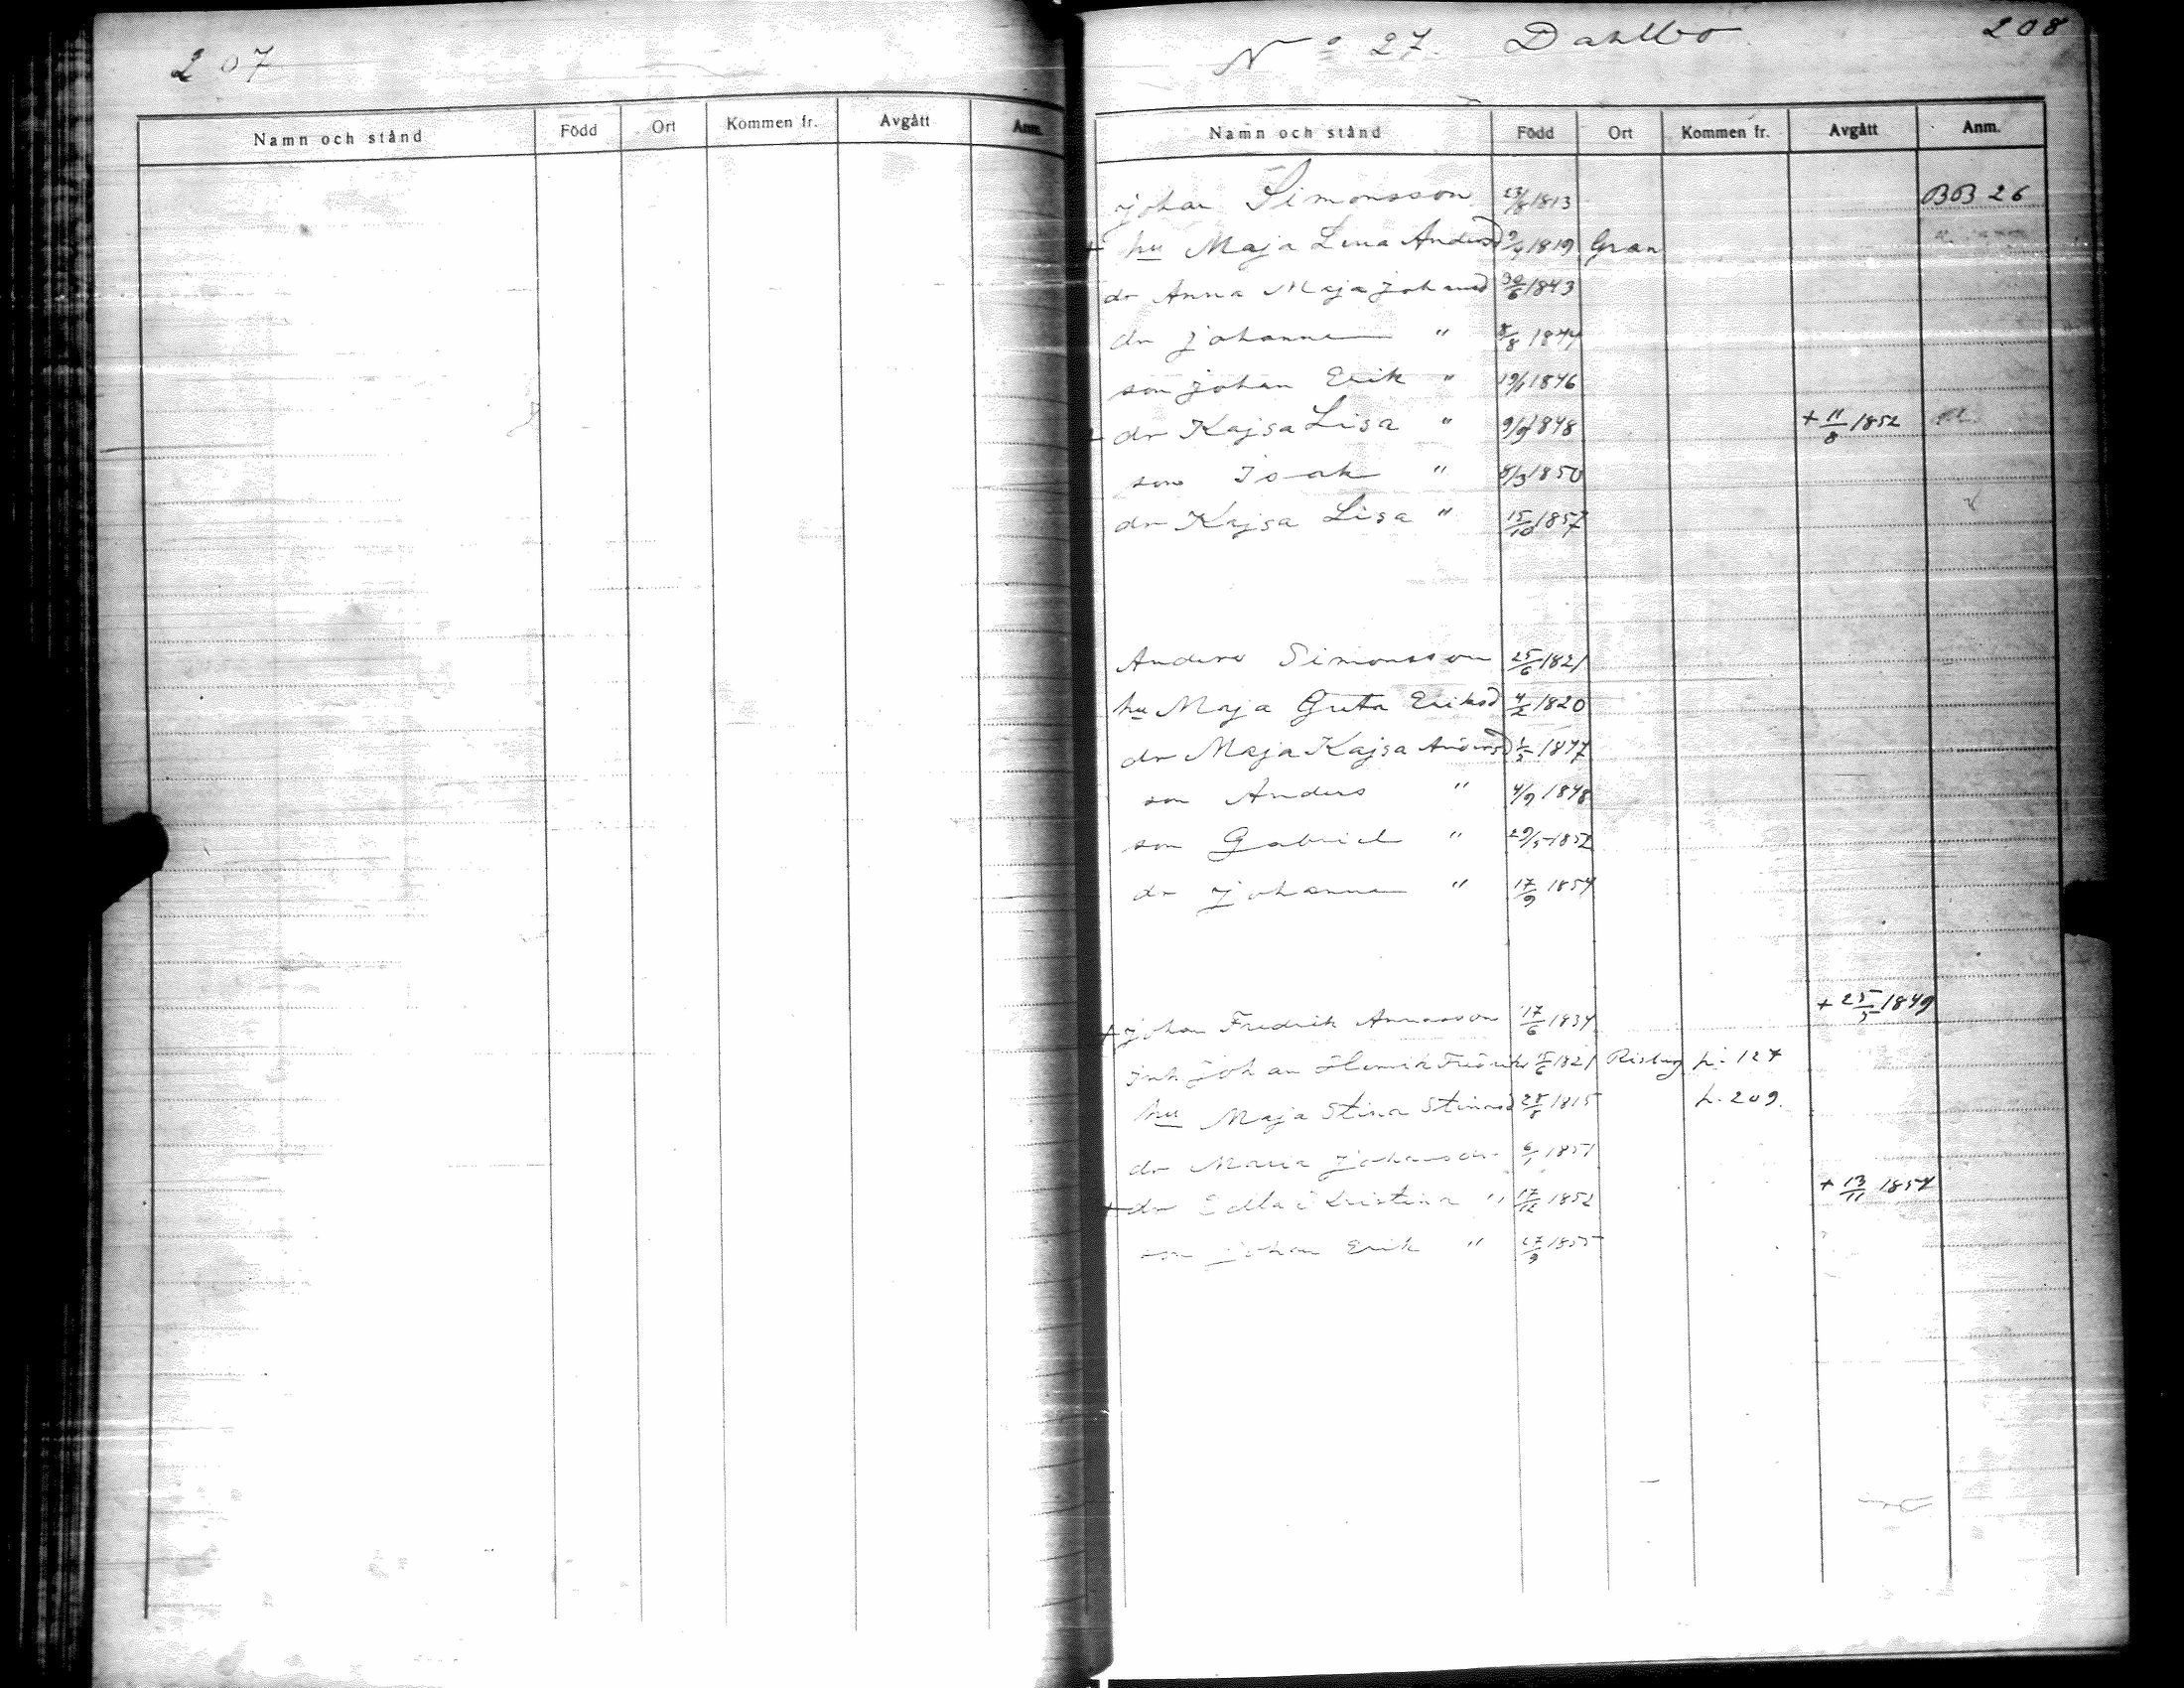 207
Namn och stånd Född Ort Kommen fr. Avgått Anm.
No 27. Dahlbo 208
Namn och stånd Född Ort Kommen fr. Avgått Anm.
johan Simonsson 23/8 1813 BB 26
+ hu Maja Lena Andersd 9/7 1819 Gran
dr Anna Maja johansd 30/6 1843
dr johanna " 8/8 1844
son johan Erik " 19/1 1846
+ dr Kajsa Lisa " 9/9 1848 + 11/8 1852
son Isak " 8/3 1850
dr Kajsa Lisa " 15/10 1857
Anders Simonsson 25/6 1821
hu Maja Greta Eriksd 4/2 1820
dr Maja Kajsa Andersd 1/5 1847
son Anders " 4/9 1848
son Gabriel " 29/5 1852
dr johanna " 17/9 1854
+ johan Fredrik Annasson 17/6 1834 + 25/5 1849
inh johan Henrik Fredriks 15/6 1821 Risberg L. 127
hu Maja Stina Stinasd 28/8 1815 L. 209.
dr Maria johansdr 6/1 1851
+ dr Edla Kristina " 17/12 1852 + 13/11 1854
son johan Erik " 27/9 1855